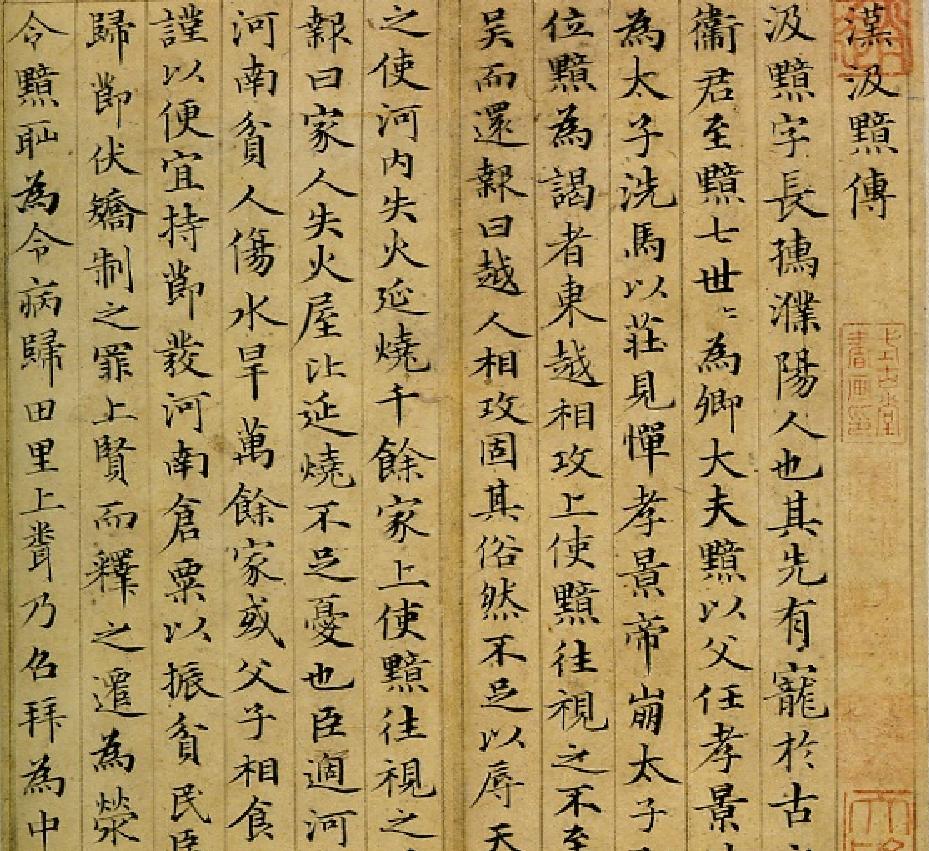 漢汲黯傳
汲黯字長孺濮陽人也其先有寵於古
衛君至黯七世〻為卿大夫黯以父任孝景
為太子洗馬以莊見憚孝景帝崩太子
位黯為謁者東越相攻上使黯往視之不至
吳而還報曰越人相攻固其俗然不足以辱天
之使河內失火延燒千餘家上使黯往視之
報曰家人失火屋比延燒不足憂也臣適河
河南貧人傷水旱萬餘家或父子相食
謹以便宜持節發河南倉粟以振貧民臣
歸節伏矯制之罪上賢而釋之遷為滎
令黯耻為令病歸田里上聞乃召拜為中